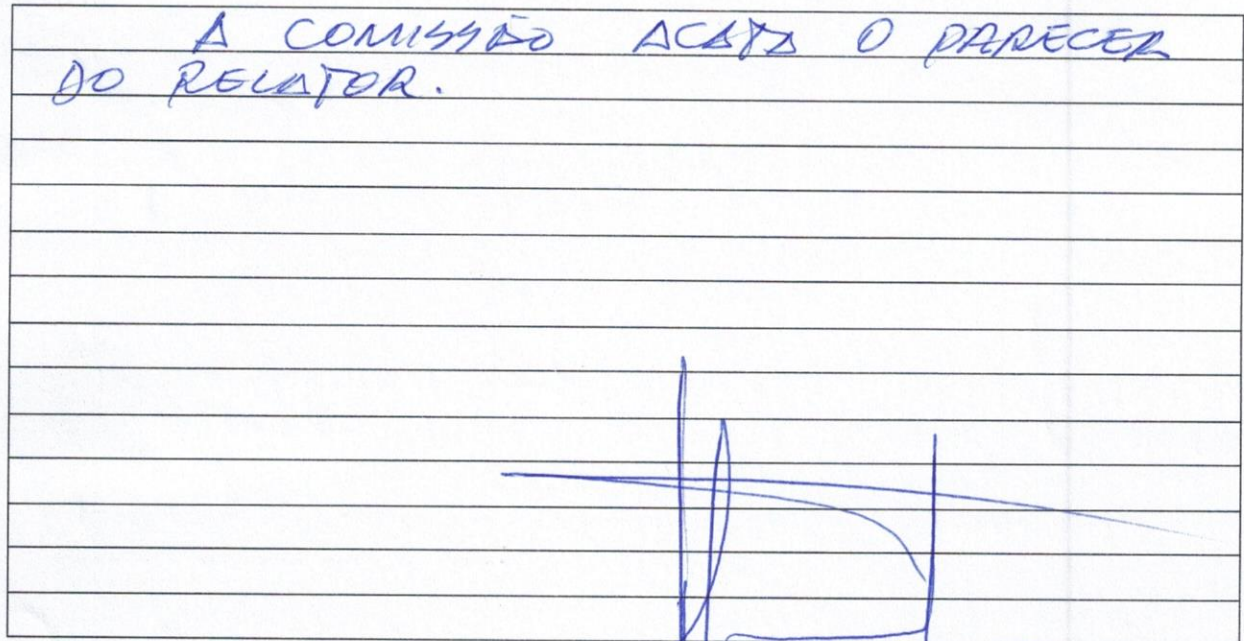 A COMISSÃO ACATA O PARECER
DO RELATOR.